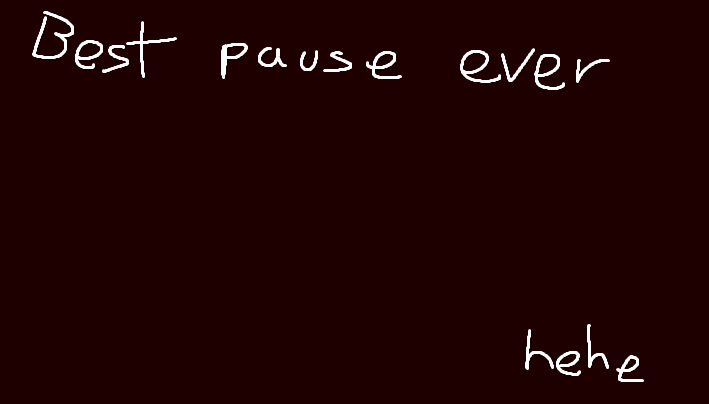 Best pause ever
hehe